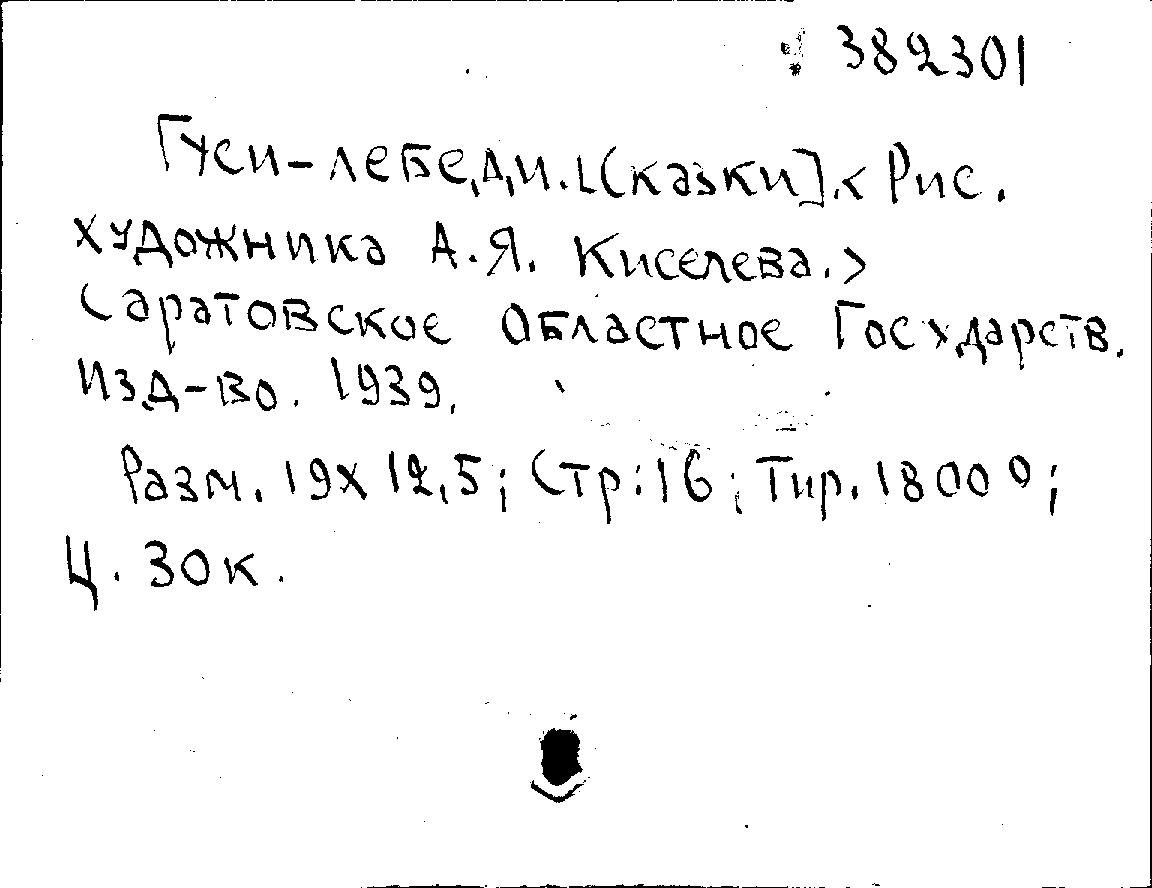 382301
Гуси-лебеди. [Сказки]. < Рис.
художника А.Я. Киселева. >
Саратовское Областное Государств.
изд-во. 1939.
Разм. 19х12,5; Стр: 16; Тир. 18000;
Ц. 30к.